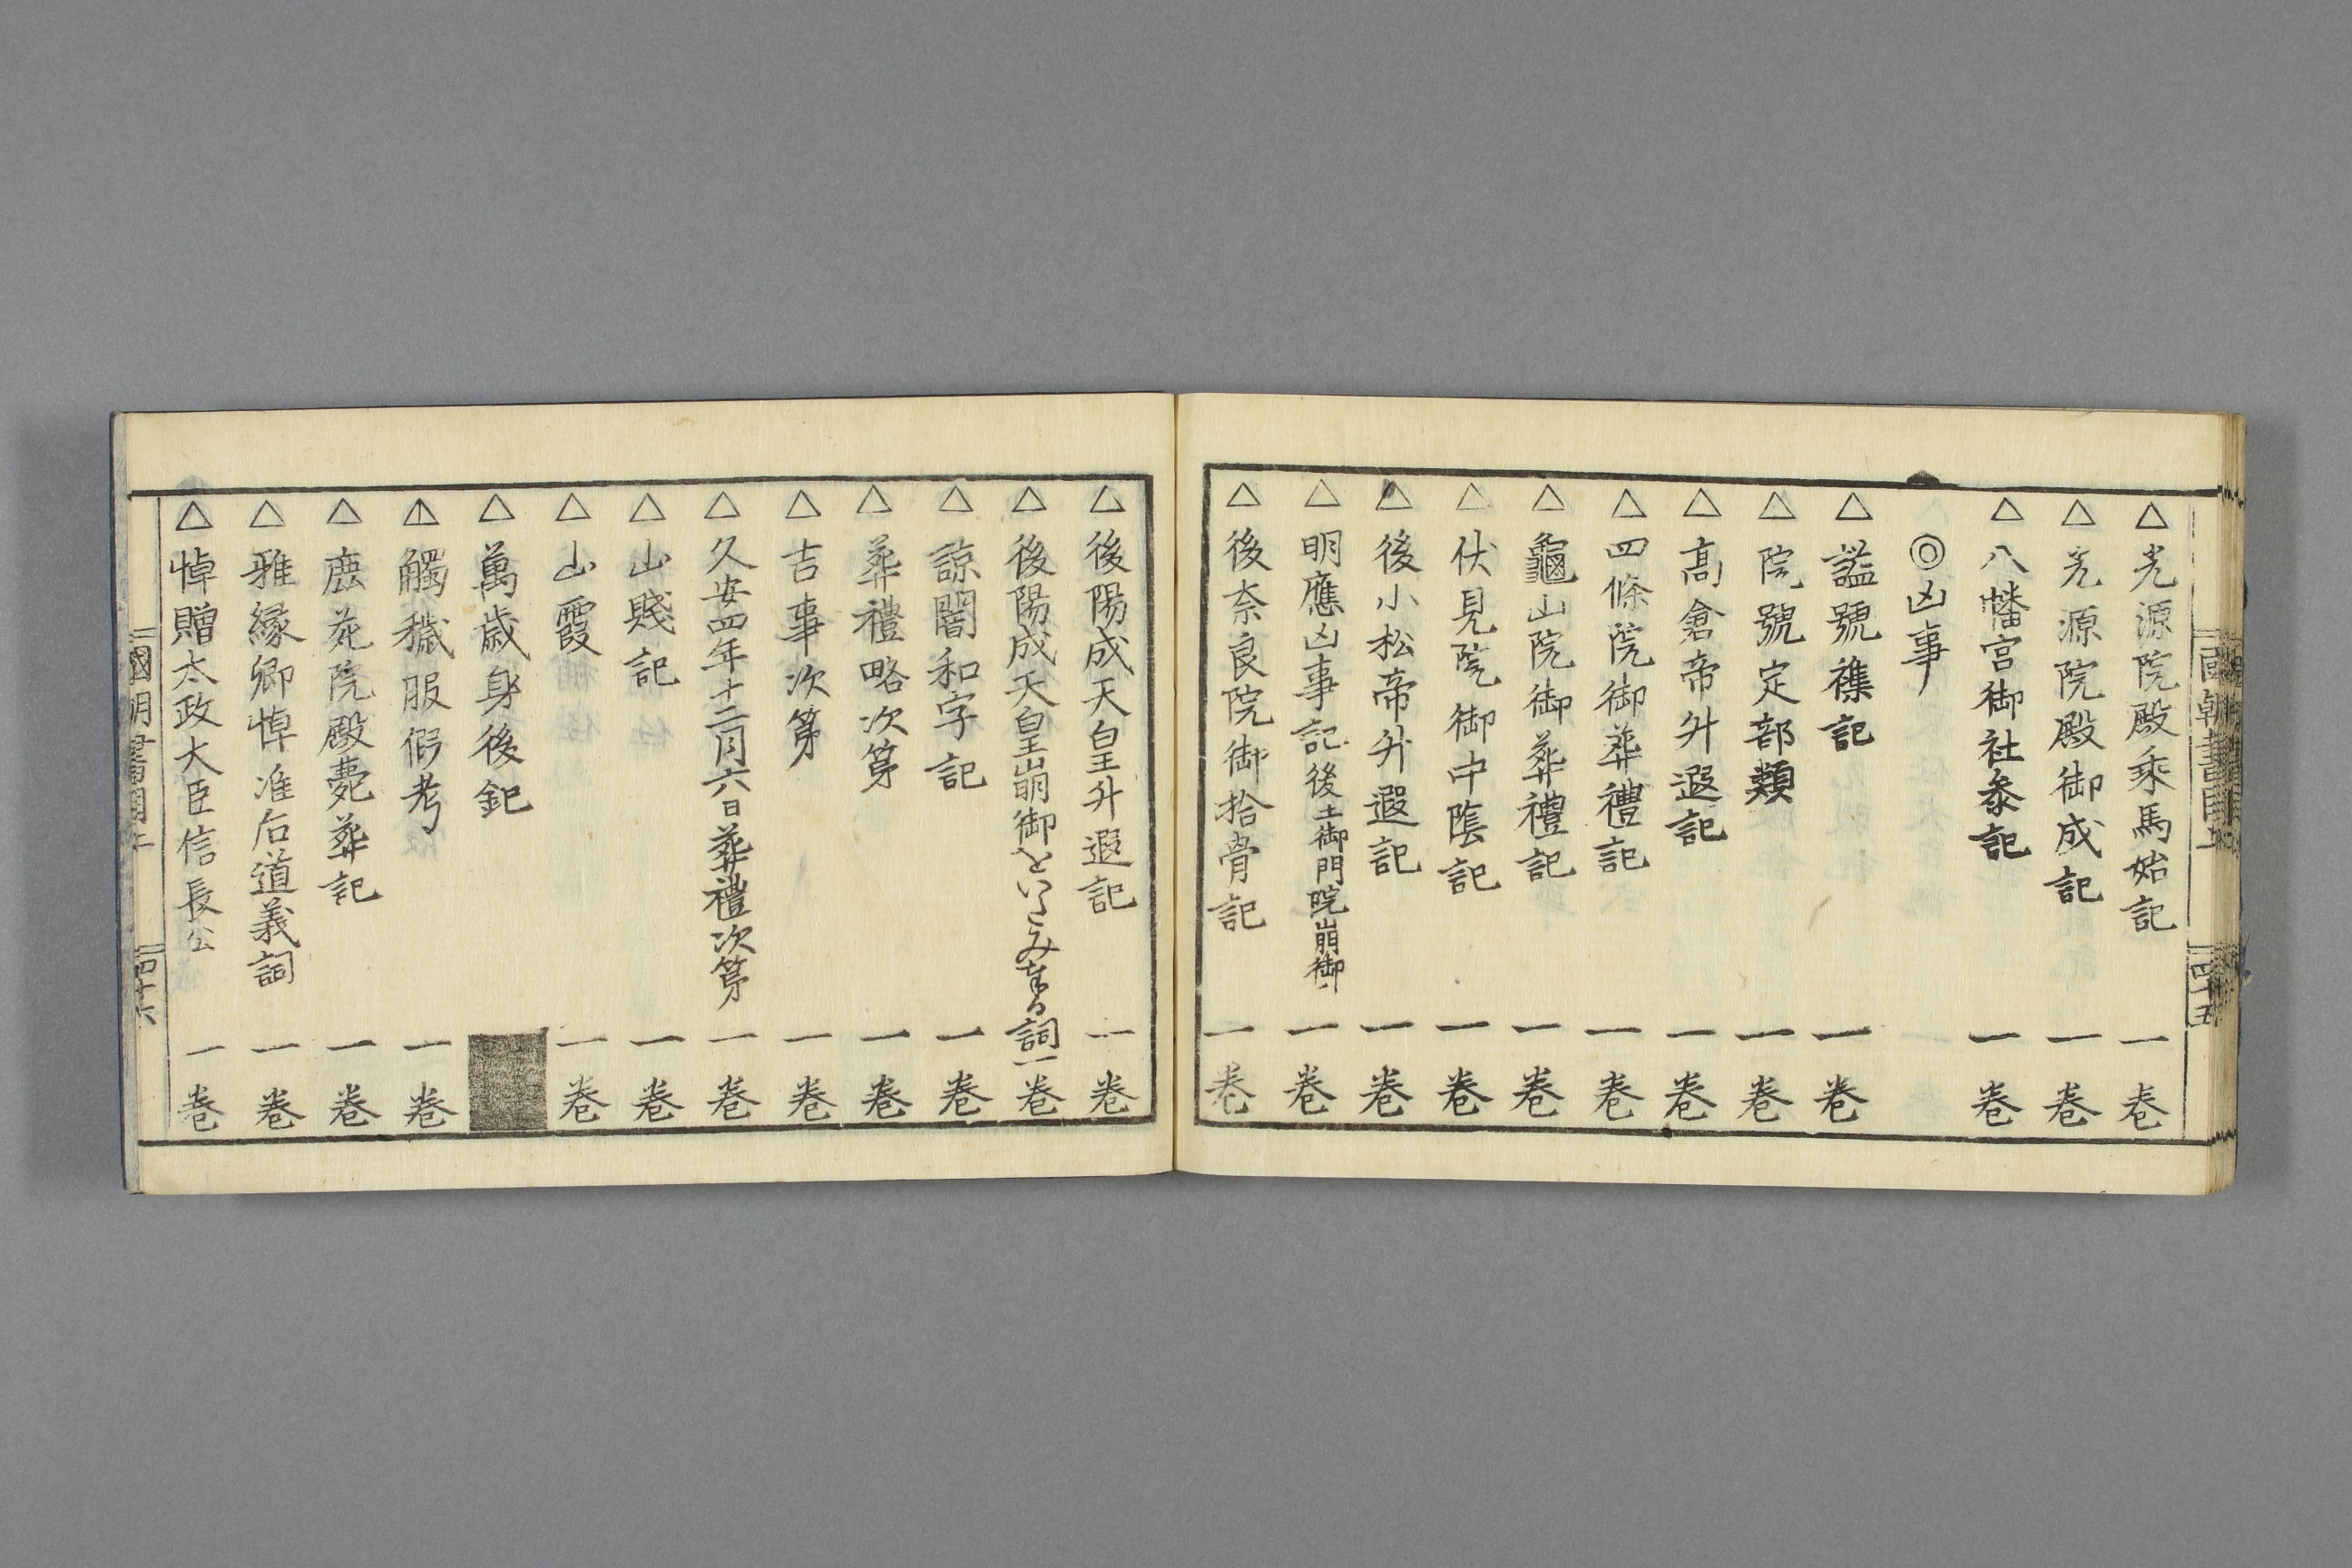 △光源院殿乘馬始記 一卷
△光源院殿御成記 一卷
△八幡宮御社参記 一卷
◎凶事
△謚號襍記 一卷
△院號定部類 一卷
△髙倉帝升遐記 一卷
△四條院御葬禮記 一卷
△龜山院御葬禮記 一卷
△伏見院御中陰記 一卷
△後小松帝升遐記 一卷
△明應凶事記 後土御門院崩御 一卷
△後奈良院御拾骨記 一卷
△後陽成天皇升遐記 一卷
△後陽成天皇崩御をいたみ奉る詞 一卷
△諒闇和字記 一卷
△葬禮略次第 一卷
△吉事次第 一卷
△久安四年十二月六日葬禮次第 一卷
△山賤記 一卷
△山霞 一卷
△萬歳身後鈀
△觸穢服假考 一卷
△鹿苑院殿薨葬記 一卷
△雅縁卿悼准后道義詞 一卷
△悼贈太政大臣信長公 一卷
四十六